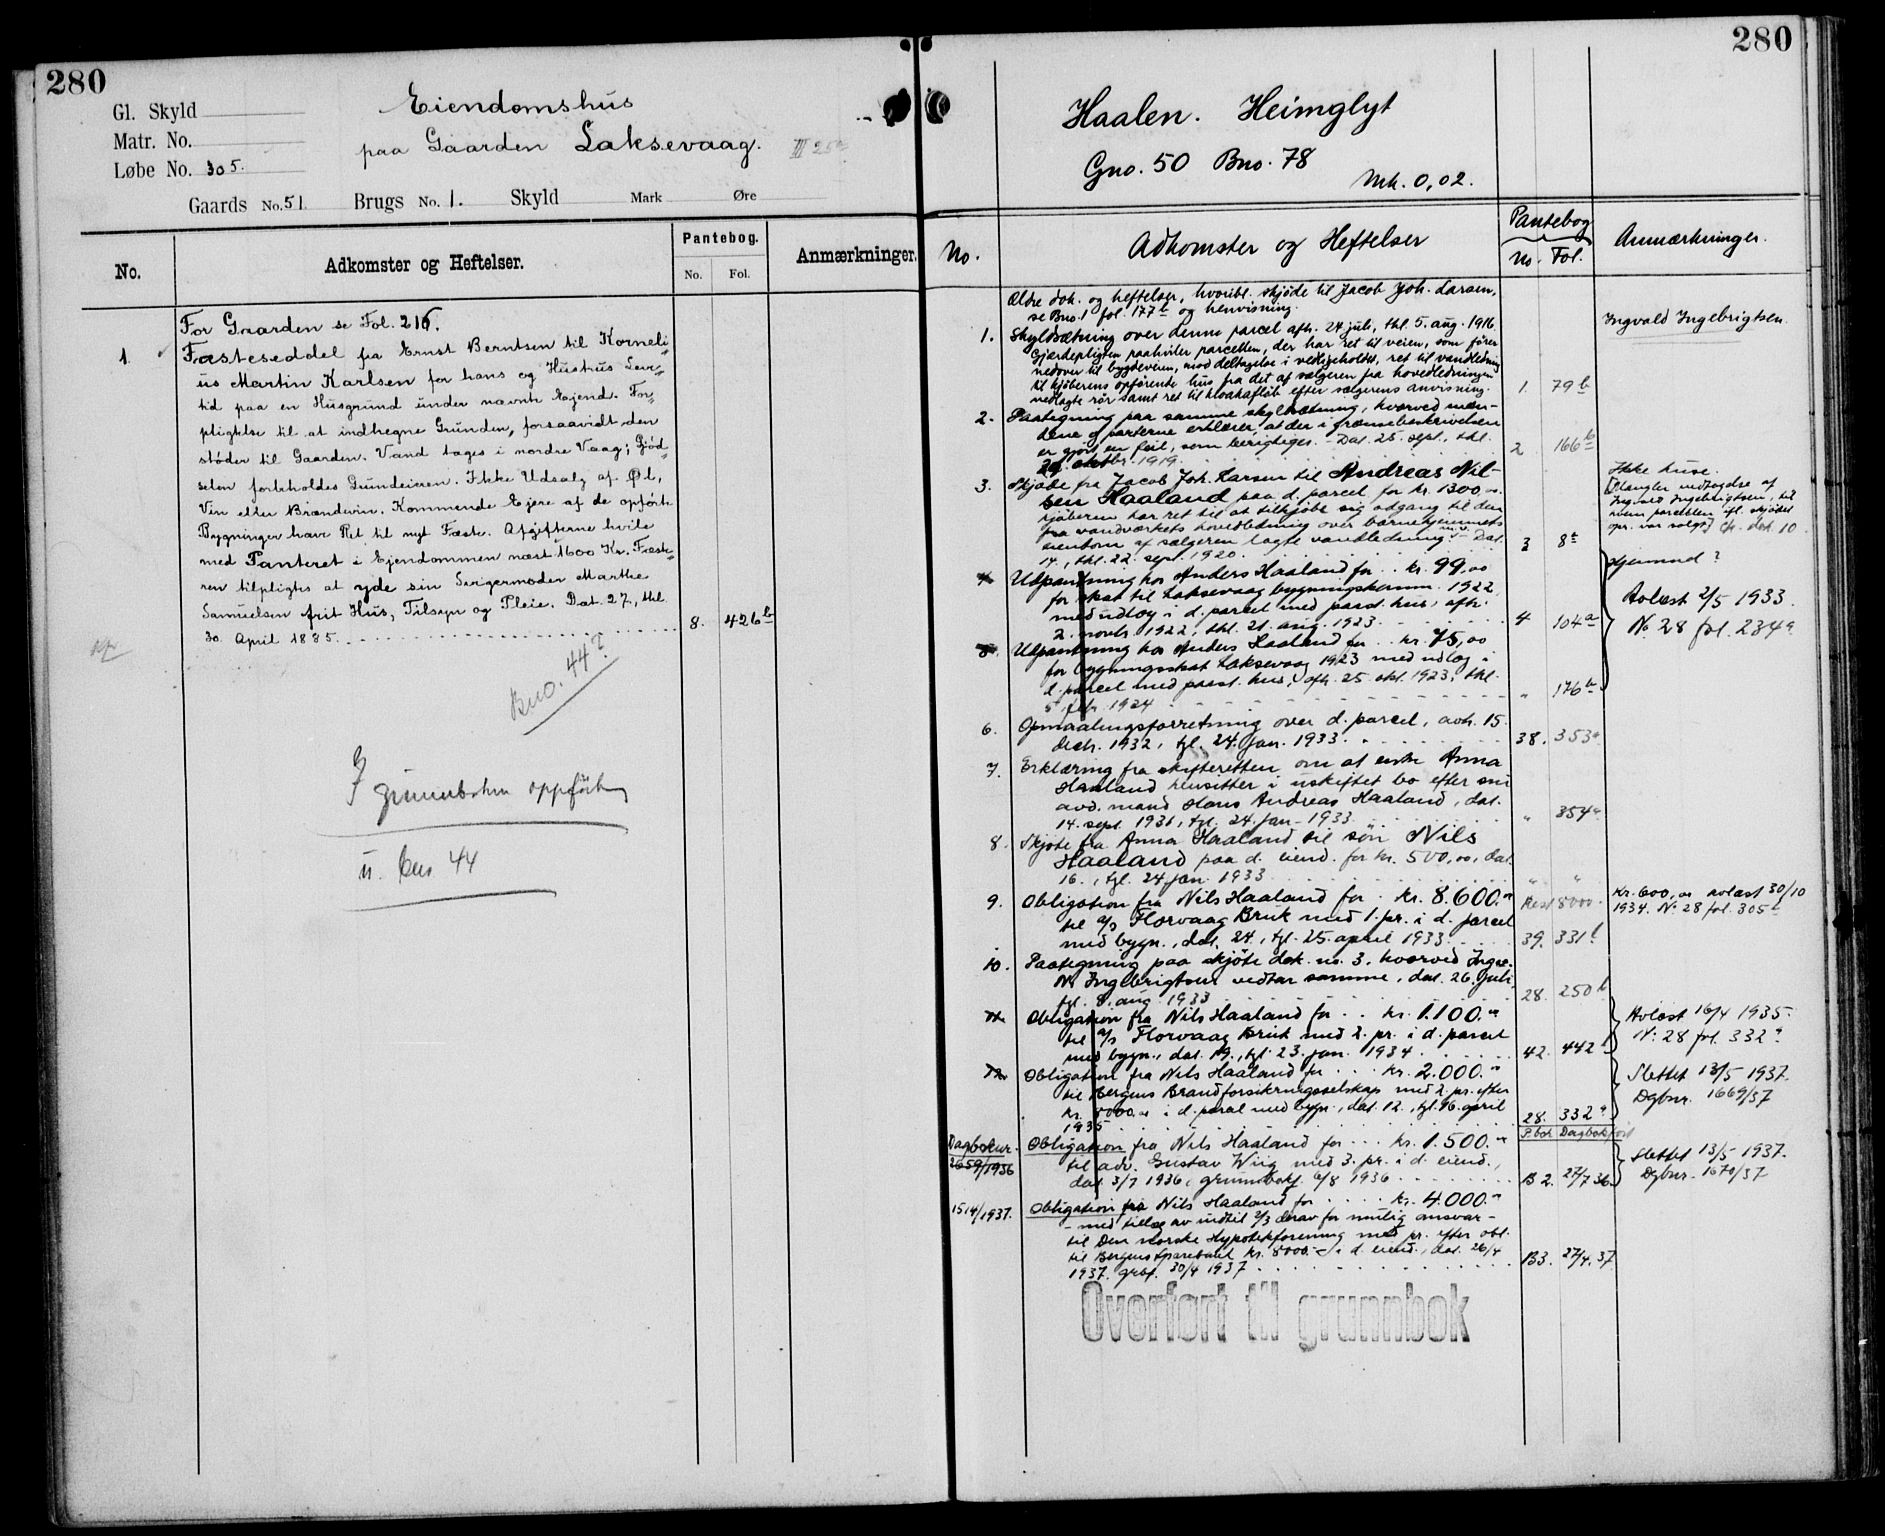 280
Gl. Skyld
Matr. No.
Løbe No. 305.
Eiendomshus
paa Gaarden Laksevaag.
Gaards No. 51. Brugs No. 1. Skyld Mark Øre
No.
Adkomster og Heftelser.
Pantebog.
No. Fol.
Anmærkninger.
For Gaarden se Fol. 216.
1. Fæsteseddel fra Ernst Berntsen til Korneli-
us Martin Karlsen for hans og Hustrus Levе-
tid paa en Husgrund under nævnte Ejend. For-
pligtelse til at indhegne Grunden, forsaavidt den
støder til Gaarden. Vand tages i nordre Vaag; Gjød-
selen forbeholdes Grundeieren. Ikke Udsalg af Øl,
Vin eller Brændevin. Kommende Ejere af de opførte
Bygninger have Ret til nyt Fæste. Afgifterne hvile
med Panteret i Ejendommen næst 1600 Kr. Fæste-
ren tilpligtes at yde sin Svigermoder Marthe
Samuelsen frit Hus, Tilsyn og Pleie. Dat. 27, thl.
30. April 1885. 8. 426 b
Bno. 44?
I grunnboken oppført
u. bns 44
280
Haalen. Heimglyt
Gno. 50 Bno. 78
Mrk. 0,02.
No.
Adkomster og Heftelser
Pantebog
No. Fol.
Anmærkninger.
Ældre dok. og heftelser, hvoribl. skjøde til Jacob Joh. Larsen,
se Bno. 1 fol. 177 b og henvisning.
Ingvald Ingebrigtsen.
1. Skyldsætning over denne parcel afh. 24 juli, thl. 5. aug. 1916.
Gjærdepligten paahviler parcellen, der har ret til veien, som fører
nedover til bygdeveien, mod deltagelse i vedligeholdet, ret til vandledning
til kjøberens opførende hus fra det af sælgeren fra hovedledningen
nedlagte rør samt ret til kloakafløb efter sælgerens anvisning. 1 79 b
2. Paategning paa samme skyldsætning, hvorved mæn-
dene og parterne erklærer, at der i grænsebeskrivelsen
er gjort en feil, som berigtiges. - Dat. 25. sept., thl.
29. oktbr. 1919. 2 166 b
3. Skjøde fra Jacob Joh. Larsen til Andreas Nil-
sen Haaland paa d. parcel for kr. 1300,00.
Kjøberen har ret til at tilkjøbe sig adgang til den
fra vandværkets hovedledning over barnehjemmets
eiendom af sælgeren lagte vandledning m.v. - Dat.
14., thl. 22. sept. 1920. 3 8 a
Ikke huse.
[Mangler vedtagelse af
Ingvald Ingebrigtsen, til
hvem parcellen ifl. skjødet
opr. var solgt] Cfr. dok 10.
4. Udpantning hos Anders Haaland for kr. 99,00
for skat til Laksevaag bygningskomm. 1922
med udlæg i d. parcel med paast. hus, afh.
2. novbr. 1922, thl. 21. aug. 1923. 4 104 a
hjemmel?
Avlæst 2/5 1933.
No. 28 fol. 234 a
5. Udpantning hos Anders Haaland for kr. 75,00
for bygningsskat Laksevaag 1923 med udlæg i
d. parcel med paast. hus, afh. 25 okt. 1923, thl.
5. febr. 1924 " 176 b
6. Opmaalingsforretning over d. parcel, avh. 15
decbr. 1932, tgl. 24. jan. 1933. 38. 353 a
7. Erklæring fra skifteretten om at enke Anna
Haaland hensitter i uskiftet bo efter sin
avd. mand Hans Andreas Haaland, dat.
14. sept. 1931, tgl. 24. jan. 1933. " 354 a
8. Skjøte fra Anna Haaland til søn Nils
Haaland paa d. eiend. for kr. 500,00, dat.
16., tgl. 24. jan. 1933. " "
9. Obligation fra Nils Haaland for kr. 8.600.00 Rest 8000.
til a/s Florvaag Bruk med 1. pr. i d. parcel
med bygn., dat. 24., tgl. 25. april 1933. 39. 331 b
Kr. 600,00 avlæst 30/10
1934. No. 28 fol. 305 b
10. Paategning paa skjøte dok. no. 3, hvorved Ingv.
N. Ingebrigtsen vedtar samme, dat. 26. juli,
tgl. 8. aug. 1933. 28. 250 b
11. Obligation fra Nils Haaland for kr. 1.100.00
til a/s Florvaag Bruk med 2. pr. i d. parcel
med bygn., dat. 19., tgl. 23. jan. 1934. 42. 442 b
Avlæst 16/4 1935.
No. 28 fol. 332 a
12. Obligation fra Nils Haaland for kr. 2.000.00
til Bergens Brandforsikringsselskap med 2. pr. efter
kr. 8000.00 i d. parcel med bygn., dat. 12., tgl. 16. april
1935 28. 332 a
Slettet 13/5 1937.
Dgbnr. 1669/37
P.bok Dagbokført
Dagboknr.
2659/1936 Obligation fra Nils Haaland for kr. 1.500.00
til adv. Gustav Wiig med 3. pr. i d. eiend.,
dat. 3/7 1936, grunnbokf. 4/8 1936 B 2. 27/7 36.
Slettet 13/5 1937.
Dgbnr. 1670/37
1514/1937. Obligation fra Nils Haaland for kr. 4.000.00
- med tillæg av indtil 2/3 derav for mulig ansvar -
til Den norske Hypotekforening med pr. efter obl.
til Bergens Sparebank kr. 8000.- i d. eiend., dat. 26/4
1937. grbf. 30/4 1937 B3. 27/4. 37
Overført til grunnbok